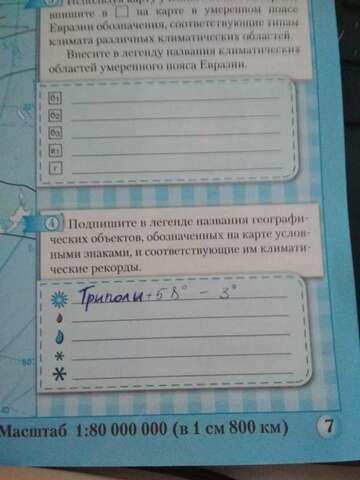 3 Используя карту
впишите в □ на карте в умеренном поясе
Евразии обозначения, соответствующие типам
климата различных климатических областей.
Внесите в легенду названия климатических
областей умеренного пояса Евразии.
б1
б2
б3
в1
г
4 Подпишите в легенде названия географи-
ческих объектов, обозначенных на карте услов-
ными знаками, и соответствующие им климати-
ческие рекорды.
Триполи +58° - 3°
Масштаб 1:80 000 000 (в 1 см 800 км)
7